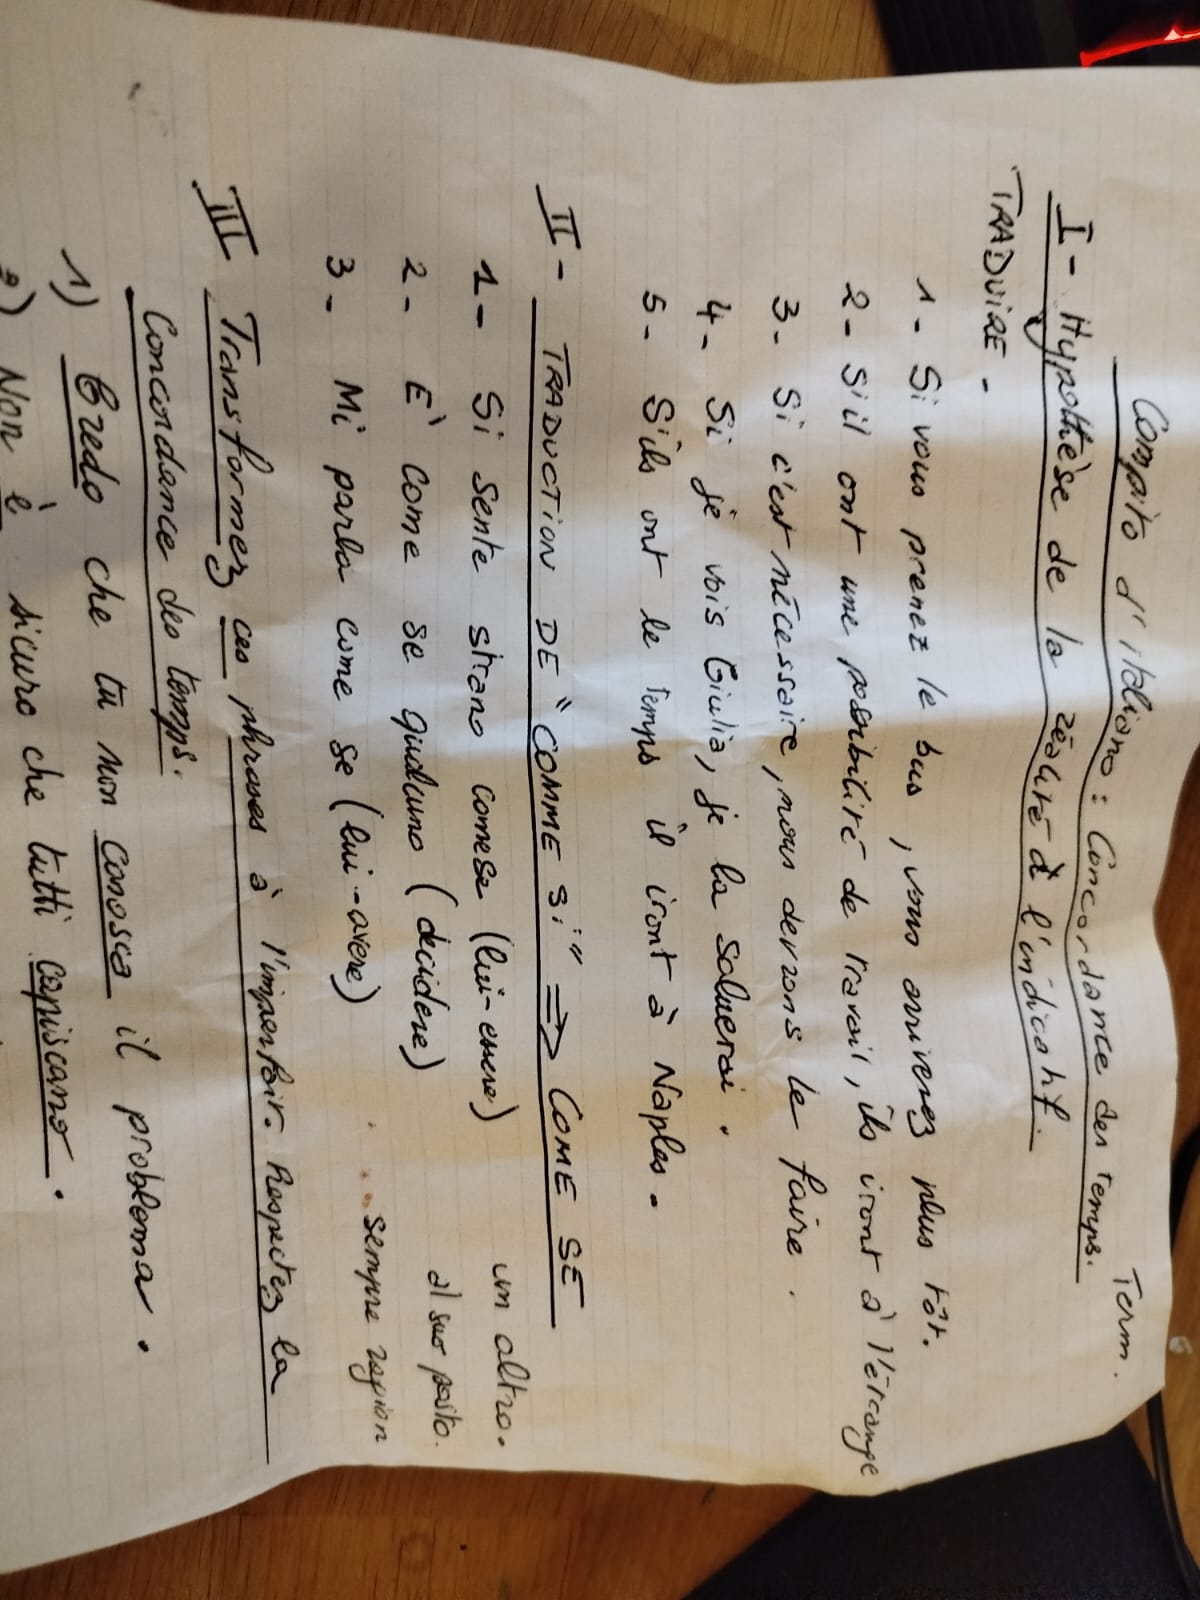 Term.
Compito d'italiano : Concordance des temps.
I- Hypothèse de la réalité à l'indicatif.
TRADUIRE -
1 - Si vous prenez le bus, vous arriverez plus tôt.
2 - S'il ont une possibilité de travail, ils iront à l'étrange
3 - Si c'est nécessaire, nous devrons le faire.
4 - Si je vois Giulia, je la saluerai.
5 - S'ils ont le temps il iront à Naples.
II - TRADUCTION DE "COMME SI" ⇒ COME SE
1 - Si sente strano come se (lui-essere) un altro.
2 - E' come se qualcuno (decidere) al suo posto.
3 - Mi parla come se (lui-avere) sempre ragion
III Transformez ces phrases à l'imparfait. Respectez la
Concordance des temps.
1) Credo che tu non conosca il problema.
2) Non è sicuro che tutti capiscano.